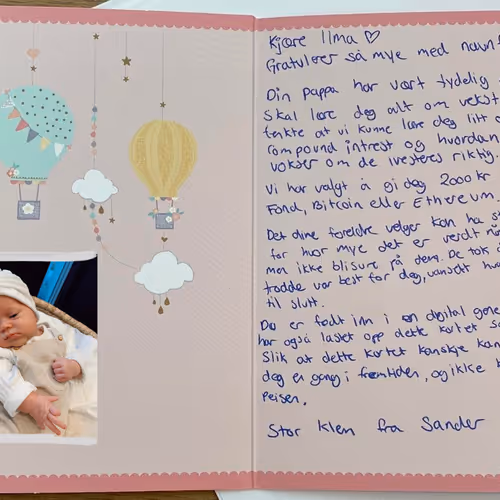 Kjære Ilma ♡
Gratulerer så mye med navn
Din pappa har vært tydelig
skal lære deg alt om vekst
tenkte at vi kunne lære deg litt
compound intrest og hvordan
vokser om de ivesteres riktig.
Vi har valgt å gi deg 2000 kr
Fond, Bitcoin eller Ethereum.
Det dine foreldre velger kan ha
for hvor mye det er verdt
men ikke bli sure på dem. De tok
trodde var best for deg, uansett
til slutt.
Du er født inn i en digital
har også lastet opp dette kortet
Slik at dette kortet kanskje kan
deg en gang i fremtiden, og ikke
Peisen.
Stor klem fra Sander